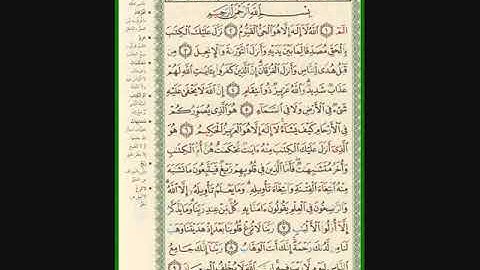 بِسْمِ ٱللَّهِ ٱلرَّحْمَٰنِ ٱلرَّحِيمِ
الٓمٓ ١ ٱللَّهُ لَآ إِلَٰهَ إِلَّا هُوَ ٱلْحَىُّ ٱلْقَيُّومُ ٢ نَزَّلَ عَلَيْكَ ٱلْكِتَٰبَ
بِٱلْحَقِّ مُصَدِّقًا لِّمَا بَيْنَ يَدَيْهِ وَأَنزَلَ ٱلتَّوْرَىٰةَ وَٱلْإِنجِيلَ ٣
مِن قَبْلُ هُدًى لِّلنَّاسِ وَأَنزَلَ ٱلْفُرْقَانَ إِنَّ ٱلَّذِينَ كَفَرُوا۟ بِـَٔايَٰتِ ٱللَّهِ لَهُمْ
عَذَابٌ شَدِيدٌ وَٱللَّهُ عَزِيزٌ ذُو ٱنتِقَامٍ ٤ إِنَّ ٱللَّهَ لَا يَخْفَىٰ عَلَيْهِ
شَىْءٌ فِى ٱلْأَرْضِ وَلَا فِى ٱلسَّمَآءِ ٥ هُوَ ٱلَّذِى يُصَوِّرُكُمْ
فِى ٱلْأَرْحَامِ كَيْفَ يَشَآءُ لَآ إِلَٰهَ إِلَّا هُوَ ٱلْعَزِيزُ ٱلْحَكِيمُ ٦ هُوَ
ٱلَّذِىٓ أَنزَلَ عَلَيْكَ ٱلْكِتَٰبَ مِنْهُ ءَايَٰتٌ مُّحْكَمَٰتٌ هُنَّ أُمُّ ٱلْكِتَٰبِ
وَأُخَرُ مُتَشَٰبِهَٰتٌ فَأَمَّا ٱلَّذِينَ فِى قُلُوبِهِمْ زَيْغٌ فَيَتَّبِعُونَ مَا تَشَٰبَهَ
مِنْهُ ٱبْتِغَآءَ ٱلْفِتْنَةِ وَٱبْتِغَآءَ تَأْوِيلِهِۦ وَمَا يَعْلَمُ تَأْوِيلَهُۥٓ إِلَّا ٱللَّهُ
وَٱلرَّٰسِخُونَ فِى ٱلْعِلْمِ يَقُولُونَ ءَامَنَّا بِهِۦ كُلٌّ مِّنْ عِندِ رَبِّنَا وَمَا يَذَّكَّرُ
إِلَّآ أُو۟لُوا۟ ٱلْأَلْبَٰبِ ٧ رَبَّنَا لَا تُزِغْ قُلُوبَنَا بَعْدَ إِذْ هَدَيْتَنَا وَهَبْ
لَنَا مِن لَّدُنكَ رَحْمَةً إِنَّكَ أَنتَ ٱلْوَهَّابُ ٨ رَبَّنَآ إِنَّكَ جَامِعُ
ٱلنَّاسِ لِيَوْمٍ لَّا رَيْبَ فِيهِ إِنَّ ٱللَّهَ لَا يُخْلِفُ ٱلْمِيعَادَ ٩